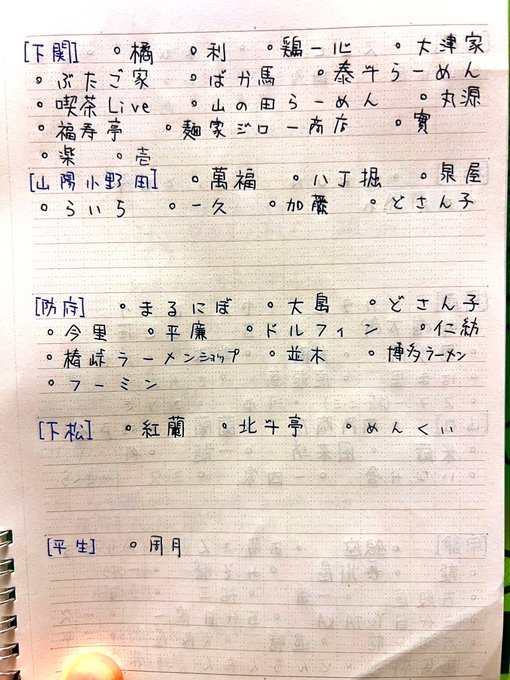 [下関] ・橘 ・利 ・鶏一心 ・大津家
・ぶたご家 ・ばか馬 ・泰斗らーめん
・喫茶Live ・山の田らーめん ・丸源
・福寿亭 ・麺家ジロー商店 ・寳
・楽 ・壱
[山陽小野田] ・萬福 ・八丁掘 ・泉屋
・らいち ・一久 ・加藤 ・どさん子
[防府] ・まるにぼ ・大島 ・どさん子
・今里 ・平廉 ・ドルフィン ・仁紡
・椿峠ラーメンショップ ・並木 ・博多ラーメン
・フーミン
[下松] ・紅蘭 ・北斗亭 ・めんくい
[平生] ・周月